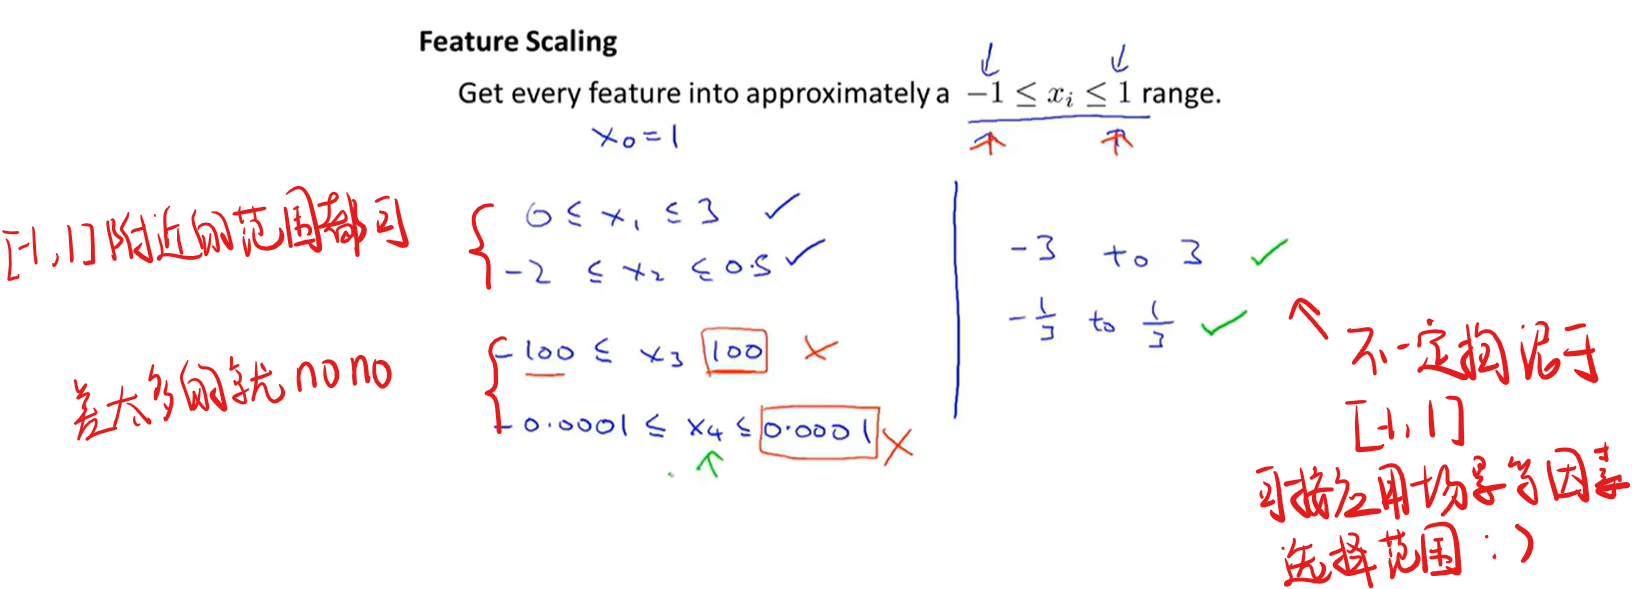 Feature Scaling
Get every feature into approximately a -1 ≤ xᵢ ≤ 1 range.
x₀=1
[-1,1]附近的范围都可
0 ≤ x₁ ≤ 3 ✓
-2 ≤ x₂ ≤ 0.5 ✓
差太多的就nono
-100 ≤ x₃ 100 ×
-0.0001 ≤ x₄ ≤ 0.0001 ×
-3 to 3 ✓
-1/3 to 1/3 ✓
不一定拘泥于
[-1,1]
可按应用场景等因素
选择范围:)